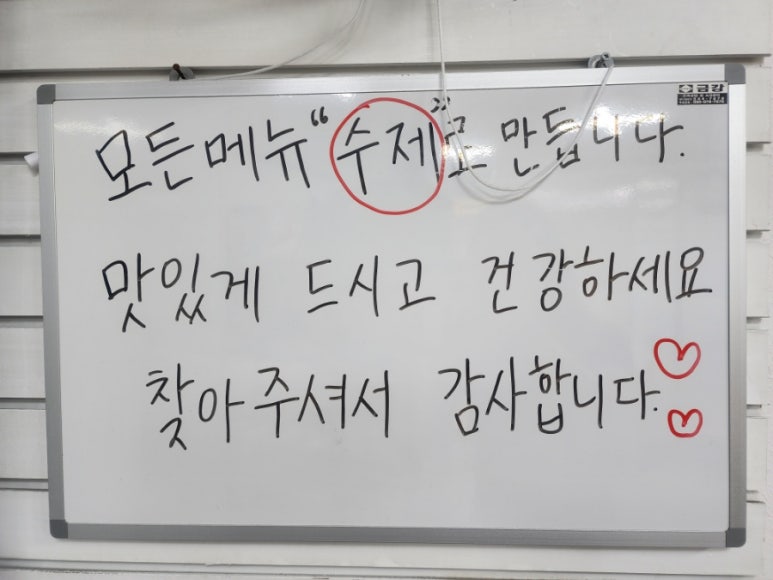 금강
모든메뉴 "수제"로 만듭니다.
맛있게 드시고 건강하세요
찾아주셔서 감사합니다.